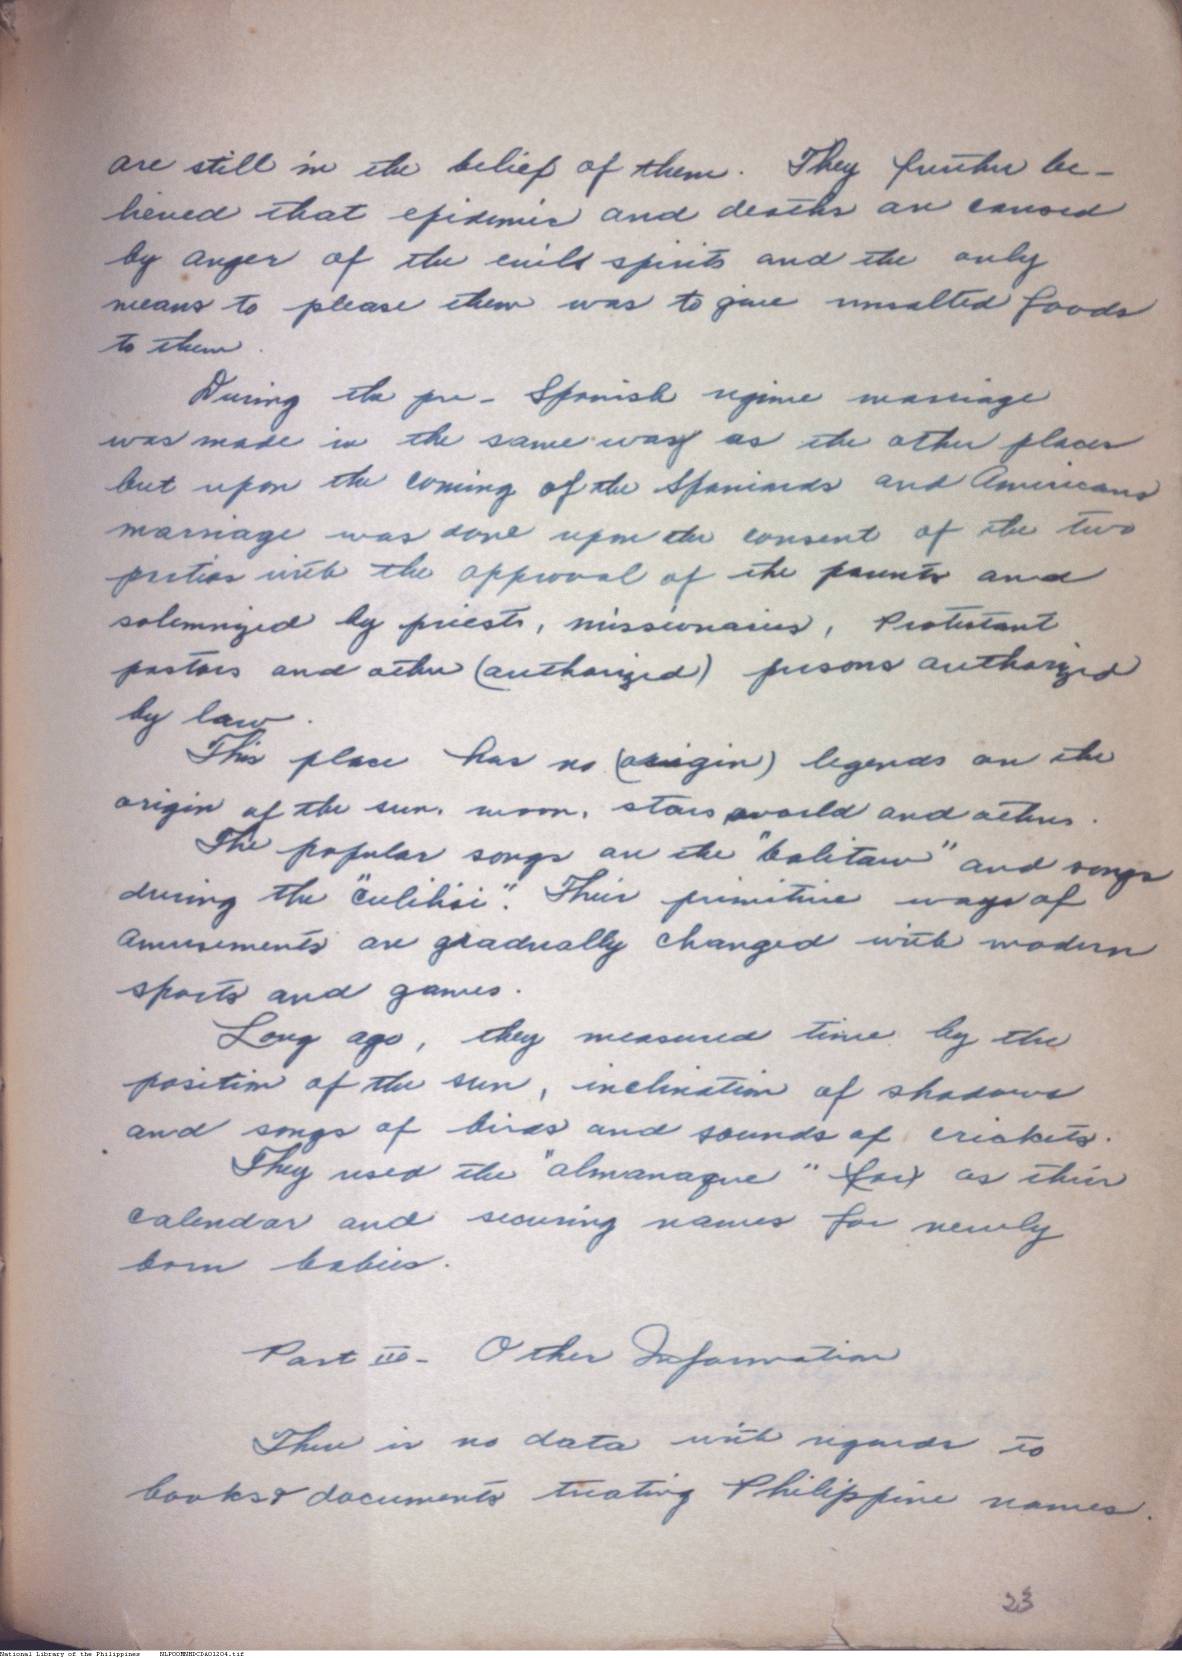 are still in the belief of them. They further be-
lieved that epidemic and deaths are caused
by anger of the evils spirits and the only
means to please them was to give unsalted foods
to them.
During the pre-Spanish regime marriage
was made in the same way as the other places
but upon the coming of the Spaniards and Americans
marriage was done upon the consent of the two
parties with the approval of the parents and
solemnized by priests, missionaries, Protestant
pastors and other (authorized) persons authorized
by law.
This place has no (origin) legends on the
origin of the sun, moon, stars world and others.
The popular songs are the "balitaw" and songs
during the "culilisi". Their primitive ways of
amusements are gradually changed with modern
sports and games.
Long ago, they measured time by the
position of the sun, inclination of shadows
and songs of birds and sounds of crickets.
They used the "almanaque" (for) as their
calendar and securing names for newly
born babies.
Part III - Other Information
There is no data with regards to
books & documents treating Philippine names.
23
National Library of the Philippines NLPOOMNHDCDA01204.tif